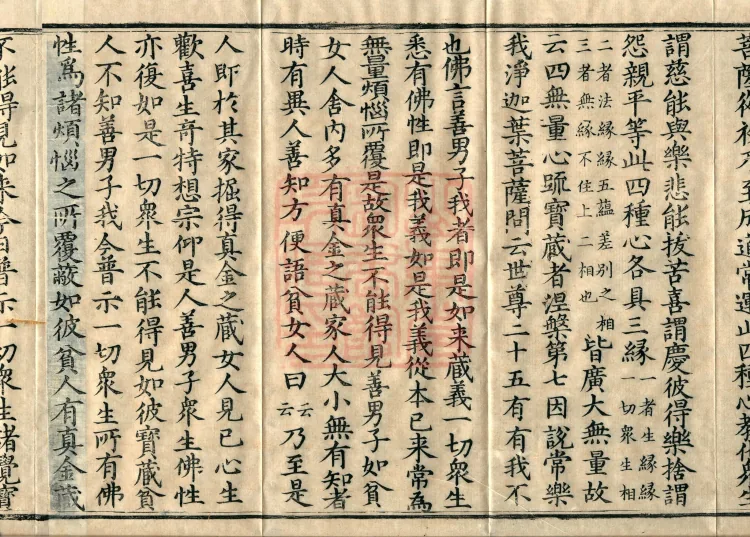 菩薩從初乃至成道常運此四種心教化眾生
謂慈能與樂悲能拔苦喜謂慶彼得樂捨謂
怨親平等此四種心各具三縁一者生縁縁一切衆生相
二者法縁縁五蘊差別之相三者無縁不住上二相也皆廣大無量故
云四無量心䟽寳藏者涅槃第七因說常樂
我淨迦葉菩薩問云世尊二十五有有我不
也佛言善男子我者即是如来藏義一切衆生
悉有佛性即是我義如是我義從本已来常爲
無量煩惱所覆是故衆生不能得見善男子如貧
女人舍内多有真金之藏家人大小無有知者
時有異人善知方便語貧女人曰云云乃至是
人即於其家掘得真金之藏女人見已心生
歡喜生奇特想宗仰是人善男子衆生佛性
亦復如是一切衆生不能得見如彼寳藏貧
人不知善男子我今普示一切衆生所有佛
性爲諸煩惱之所覆蔽如彼貧人有真金藏
不能得見如来今日普示一切衆生諸覺寳